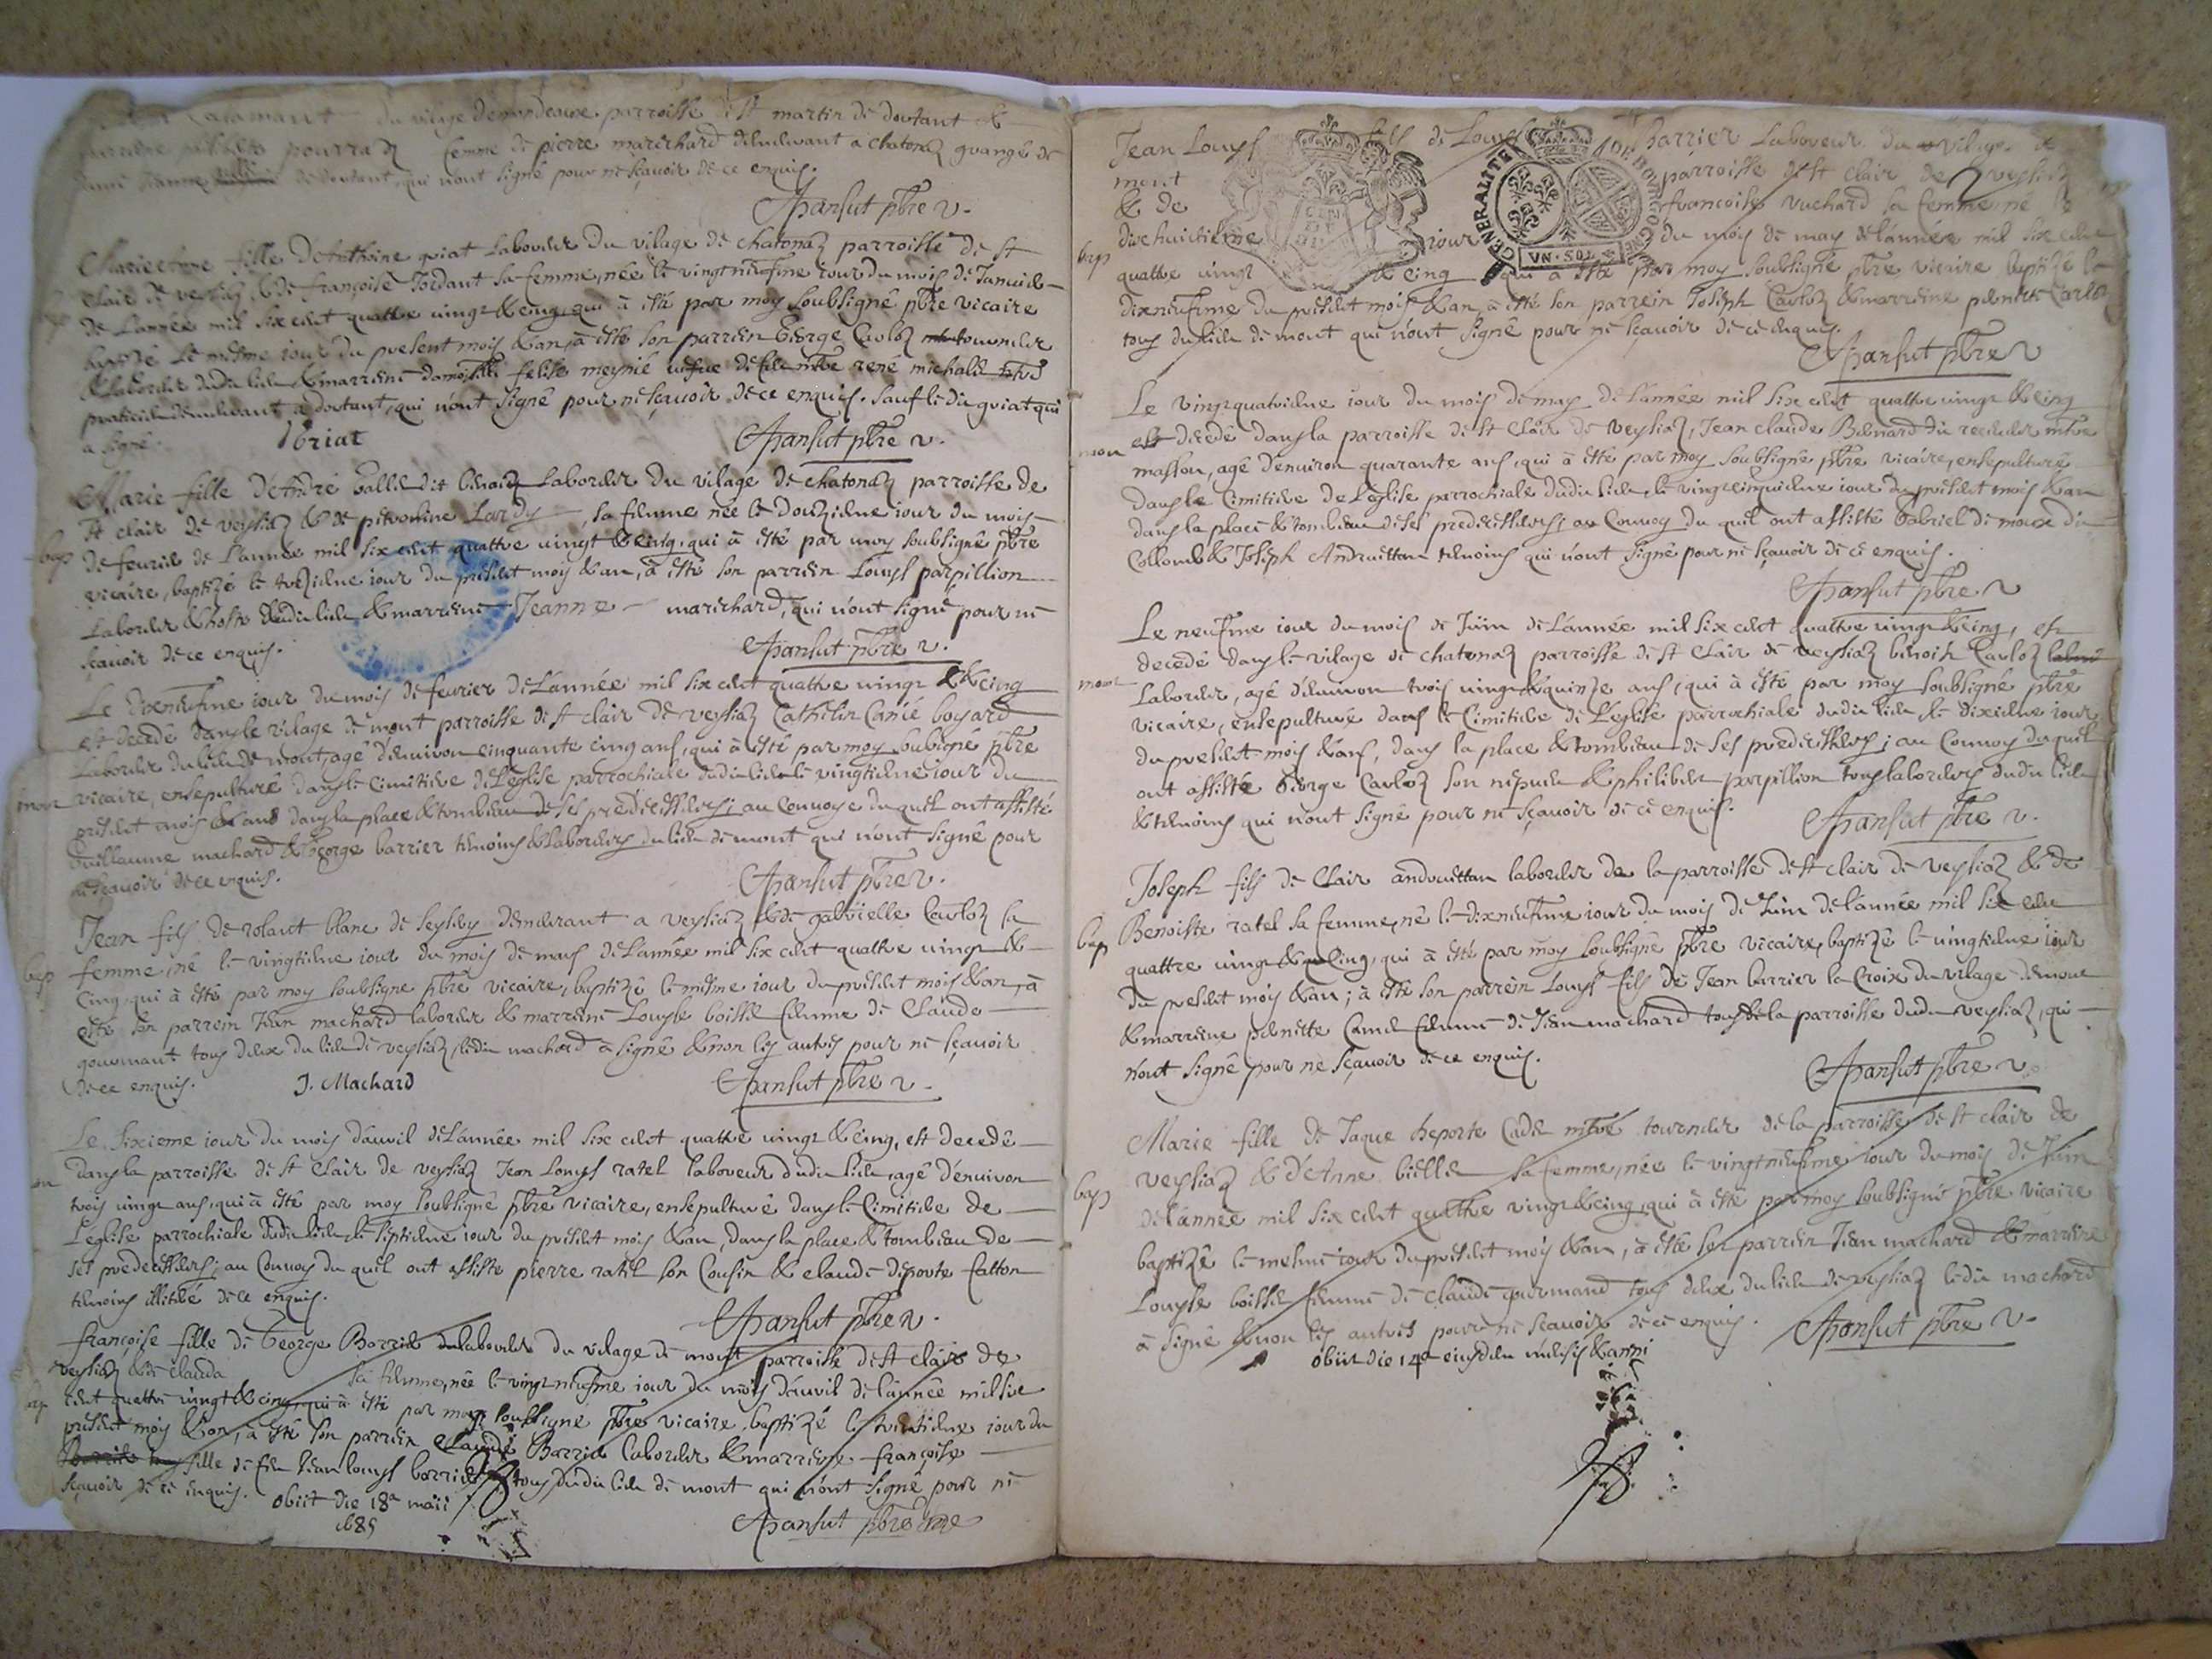 du vilage parroisse de st martin de dortant &
pourraz femme de pierre marichard demeurant a chatonaz grangé de
qui n'ont signé pour ne sçavoir de ce enquis.
Pansut pbre v.
fille d'Anthoine goiat laboureur du vilage de chatonaz parroisse de st
clair de veysiaz & de françoise Jordant sa femme, née le vingtneufme iour du mois de Januier
de l'année mil six cent quattre vingt & cinq, qui à esté par moy soubsigné pbre vicaire
baptizé le mesme iour du present mois & an, à esté son parrein George Carloz tourneur
& laboureur dudit lieu & marreine damoiselle felise meynié vefve de feu mtre rené michalet
praticien demeurant a dortant, qui n'ont signé pour ne sçavoir de ce enquis. Sauf le dit goiat qui
a signé. Pansut pbre v.
Marie fille d'André Laboureur du vilage de chatonaz parroisse de
st clair de veysiaz & de pernoline Lardy, sa femme née le douzieme iour du mois
bap de feurier de l'année mil six cent quattre vingt & cinq, qui à esté par moy soubsigné pbre
vicaire, baptizé le treizieme iour du present moys & an, à esté son parrein Louys parpillion
Laboureur & hoste dudit lieu & marreine Jeanne marichard, qui n'ont signé pour ne
sçavoir de ce enquis.
Pansut pbre v.
Le dixneufme iour du mois de feurier de L'année mil six cent quattre vingt & cinq
est decedé dans le vilage de mont parroisse de st clair de veysiaz Cathelin Canié boyard
Laboureur du lieu de mont, agé d'enuiron cinquante cinq ans, qui à esté par moy soubsigné pbre
mort vicaire, ensepulturé dans le cimitiere de L'eglise parrochiale dudit lieu le vingtieme iour du
present mois & an dans la place & tombeau de ses predecesseurs; au Conuoye du quel ont assisté
Guillaume machard & George barrier temoins & laboureurs du lieu de mont qui n'ont signé pour
ne sçavoir de ce enquis.
Pansut pbre v.
Jean fils de rolant blanc de demeurant a veysiaz & de gabrielle Carloz sa
bap femme, né le vingtieme iour du mois de mars de L'année mil six cent quattre vingt &
Cinq, qui à esté par moy soubsigne pbre vicaire, baptizé le mesme iour du present mois & an, à
esté son parrein Jean machard laboureur & marreine Louyse boisse femme de Claude
gourmant tous deux du lieu de veysiaz, ledit machard à signé & non les autres pour ne sçavoir
de ce enquis. J. Machard Pansut pbre v.
Le sixieme iour du mois d'auril de L'année mil six cent quattre vingt & cinq, est decedé
dans la parroisse de st clair de veysiaz Jean Louys ratel laboureur dudit lieu, agé d'enuiron
trois vingt ans, qui à esté par moy soubsigné pbre vicaire, ensepulturé dans le Cimitiere de
L'eglise parrochiale dudit lieu, le septieme iour du present mois & an, dans la place & tombeau de
ses predecesseurs; au Conuoy du quel ont assisté pierre ratel son Cousin & claude deporte Catton
temoins de ce enquis.
Pansut pbre v.
françoise fille de George Barrier laboureur du vilage de mont parroisse de st clair de
veysiaz & de clauda sa femme, née le vingtneufme iour du mois d'auril de l'année mil six
cent quattre vingt & cinq, qui à esté par moy soubsigné pbre vicaire, baptizé le trentieme iour du
present mois & an, à esté son parrein Claude Barrier laboureur & marreine françoise
fille de feu Jean louys barrier tous dudit lieu de mont qui n'ont signé pour ne
sçavoir de ce enquis. obiit die 18a maii
1685
Pansut pbre vicaire
Jean Louys fils de Louys Barrier Laboureur du vilage de
mont parroisse de st clair de veysiaz
& de françoise vuchard sa femme, né le
GENERALITE DE BOURGOGNE
VN·SOL
bap dixhuictieme iour du mois de may de l'année mil six cent
quattre vingt & cinq qui à esté par moy soubsigné pbre vicaire baptizé le
dixneufme du present mois & an, à esté son parrein Joseph Carloz & marreine pernette Carloz
tous du lieu de mont qui n'ont signé pour ne sçavoir de ce enquis.
Pansut pbre v
Le vingtquatrieme iour du mois de may de L'année mil six cent quattre vingt & cinq
est decedé dans la parroisse de st Clair de veysiaz, Jean claude Bernard dit mtre
masson, agé d'enuiron quarante ans, qui à esté par moy soubsigné pbre vicaire, ensepulturé
dans le Cimitiere de L'eglise parrochiale dudit lieu, le vingtcinquieme iour du present mois & an
dans la place & tombeau de ses predecesseurs; au Conuoy du quel ont assisté Gabriel de moux dit
Collomb & Joseph Andruettan temoins qui n'ont signé pour ne sçavoir de ce enquis.
Pansut pbre v
Le neufme iour du mois de Juin de L'année mil six cent quattre vingt & cinq, est
decedé dans le vilage de chatonaz parroisse de st Clair de veysiaz benoist Carloz
mort Laboureur, agé d'enuiron trois vingt & quinze ans, qui à esté par moy soubsigné pbre
vicaire, ensepulturé dans le Cimitiere de L'eglise parrochiale dudit lieu, le dixieme iour
du present mois & ans, dans la place & tombeau de ses predecesseurs; au Conuoy duquel
ont assisté George Carloz son nepueu & philibert parpillion tous laboureurs dudit lieu
& temoins qui n'ont signé pour ne sçavoir de ce enquis.
Pansut pbre v.
Joseph fils de Clair andruettan laboureur de la parroisse de st clair de veysiaz & de
bap Benoiste ratel sa femme, né le dixneufme iour du mois de Juin de l'année mil six cent
quattre vingt & Cinq, qui à esté par moy soubsigné pbre vicaire, baptizé le vingtieme iour
du present mois & an; à esté son parrein Louys fils de Jean barrier la Croix du vilage de mont
& marreine pernette femme de Jean machard tous de la parroisse dudit veysiaz, qui
n'ont signé pour ne sçavoir de ce enquis.
Pansut pbre v
Marie fille de Jaque deporte Cadet mtre tourneur de la parroisse de st clair de
bap veysiaz & d'Anne sa femme, née le vingtneufme iour du mois de Juin
de l'année mil six cent quattre vingt & cinq, qui à esté par moy soubsigné pbre vicaire
baptizé le mesme iour du present mois & an, à esté son parrein Jean machard & marreine
Louyse boisse femme de Claude gourmand tous deux du lieu de veysiaz ledit machard
à signé & non les autres pour ne sçavoir de ce enquis. Pansut pbre v.
obiit die 14a eiusdem mensis & anni